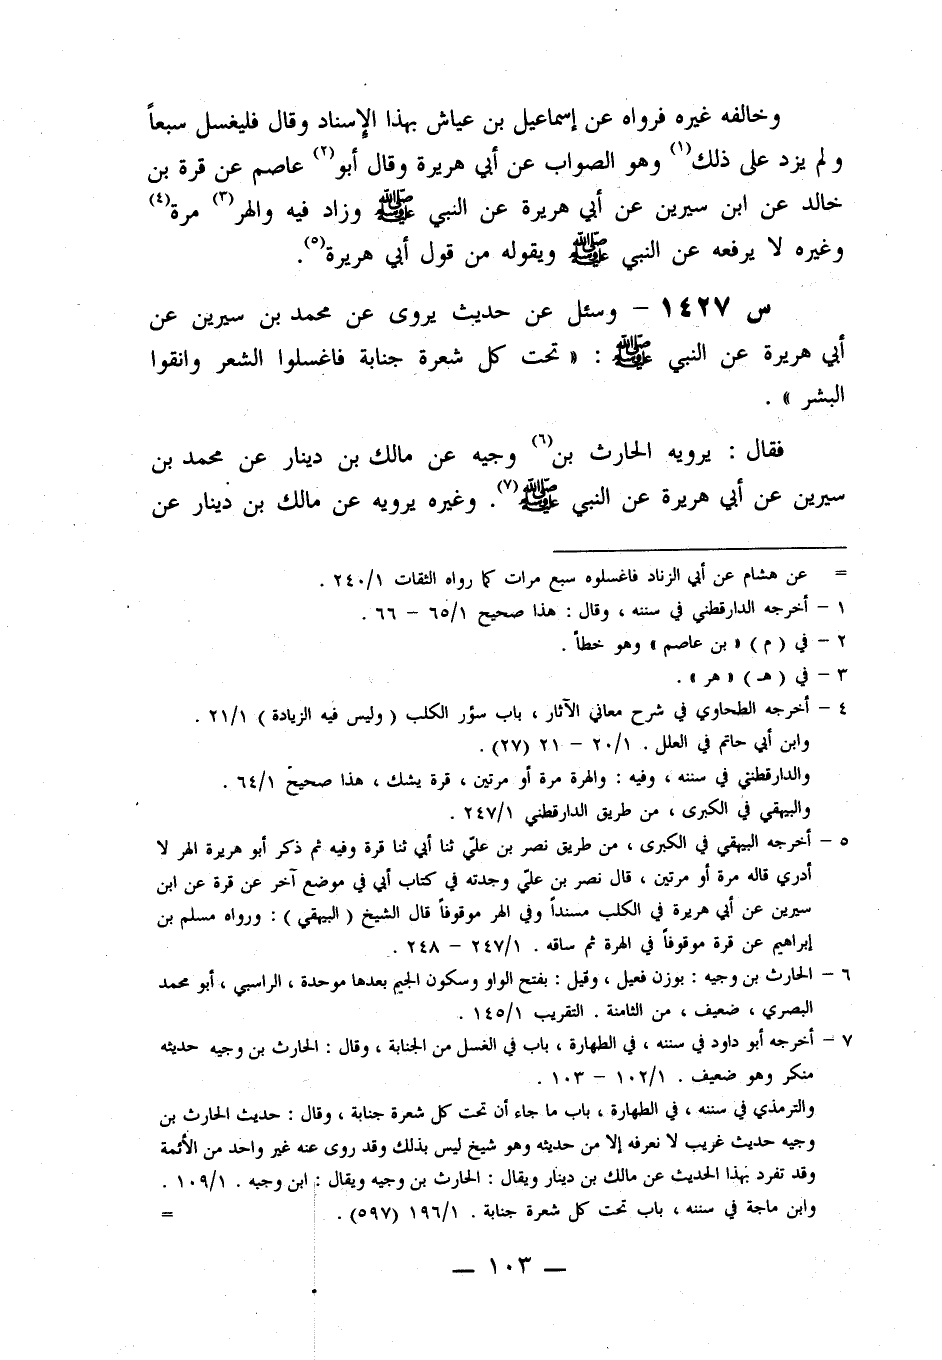 وخالفه غيره فرواه عن إسماعيل بن عياش بهذا الإسناد وقال فليغسل سبعاً
ولم يزد على ذلك(١) وهو الصواب عن أبي هريرة وقال أبو(٢) عاصم عن قرة بن
خالد عن ابن سيرين عن أبي هريرة عن النبي ﷺ وزاد فيه والهر(٣) مرة(٤)
وغيره لا يرفعه عن النبي ﷺ ويقوله من قول أبي هريرة(٥).
س ١٤٢٧ – وسئل عن حديث يروى عن محمد بن سيرين عن
أبي هريرة عن النبي ﷺ : « تحت كل شعرة جنابة فاغسلوا الشعر وانقوا
البشر » .
فقال : يرويه الحارث بن(٦) وجيه عن مالك بن دينار عن محمد بن
سيرين عن أبي هريرة عن النبي ﷺ(٧). وغيره يرويه عن مالك بن دينار عن
= عن هشام عن أبي الزناد فاغسلوه سبع مرات كما رواه الثقات ٢٤٠/١ .
١ – أخرجه الدارقطني في سننه ، وقال : هذا صحيح ٦٥/١ – ٦٦ .
٢ – في ( م ) « بن عاصم » وهو خطأ .
٣ – في ( هـ ) « هر » .
٤ – أخرجه الطحاوي في شرح معاني الآثار ، باب سؤر الكلب ( وليس فيه الزيادة ) ٢١/١ .
وابن أبي حاتم في العلل . ٢٠/١ – ٢١ (٢٧) .
والدارقطني في سننه ، وفيه : والهرة مرة أو مرتين ، قرة يشك ، هذا صحيح ٦٤/١ .
والبيهقي في الكبرى ، من طريق الدارقطني ٢٤٧/١ .
٥ – أخرجه البيهقي في الكبرى ، من طريق نصر بن عليّ ثنا أبي ثنا قرة وفيه ثم ذكر أبو هريرة الهر لا
أدري قاله مرة أو مرتين ، قال نصر بن عليّ وجدته في كتاب أبي في موضع آخر عن قرة عن ابن
سيرين عن أبي هريرة في الكلب مسنداً وفي الهر موقوفاً قال الشيخ ( البيهقي ) : ورواه مسلم بن
إبراهيم عن قرة موقوفاً في الهرة ثم ساقه . ٢٤٧/١ – ٢٤٨ .
٦ – الحارث بن وجيه : بوزن فعيل ، وقيل : بفتح الواو وسكون الجيم بعدها موحدة ، الراسبي ، أبو محمد
البصري ، ضعيف ، من الثامنة . التقريب ١٤٥/١ .
٧ – أخرجه أبو داود في سننه ، في الطهارة ، باب في الغسل من الجنابة ، وقال : الحارث بن وجيه حديثه
منكر وهو ضعيف . ١٠٢/١ – ١٠٣ .
والترمذي في سننه ، في الطهارة ، باب ما جاء أن تحت كل شعرة جنابة ، وقال : حديث الحارث بن
وجيه حديث غريب لا نعرفه إلا من حديثه وهو شيخ ليس بذلك وقد روى عنه غير واحد من الأئمة
وقد تفرد بهذا الحديث عن مالك بن دينار ويقال : الحارث بن وجيه ويقال : ابن وجبه . ١٠٩/١ .
وابن ماجة في سننه ، باب تحت كل شعرة جنابة . ١٩٦/١ (٥٩٧) . =
— ١٠٣ —